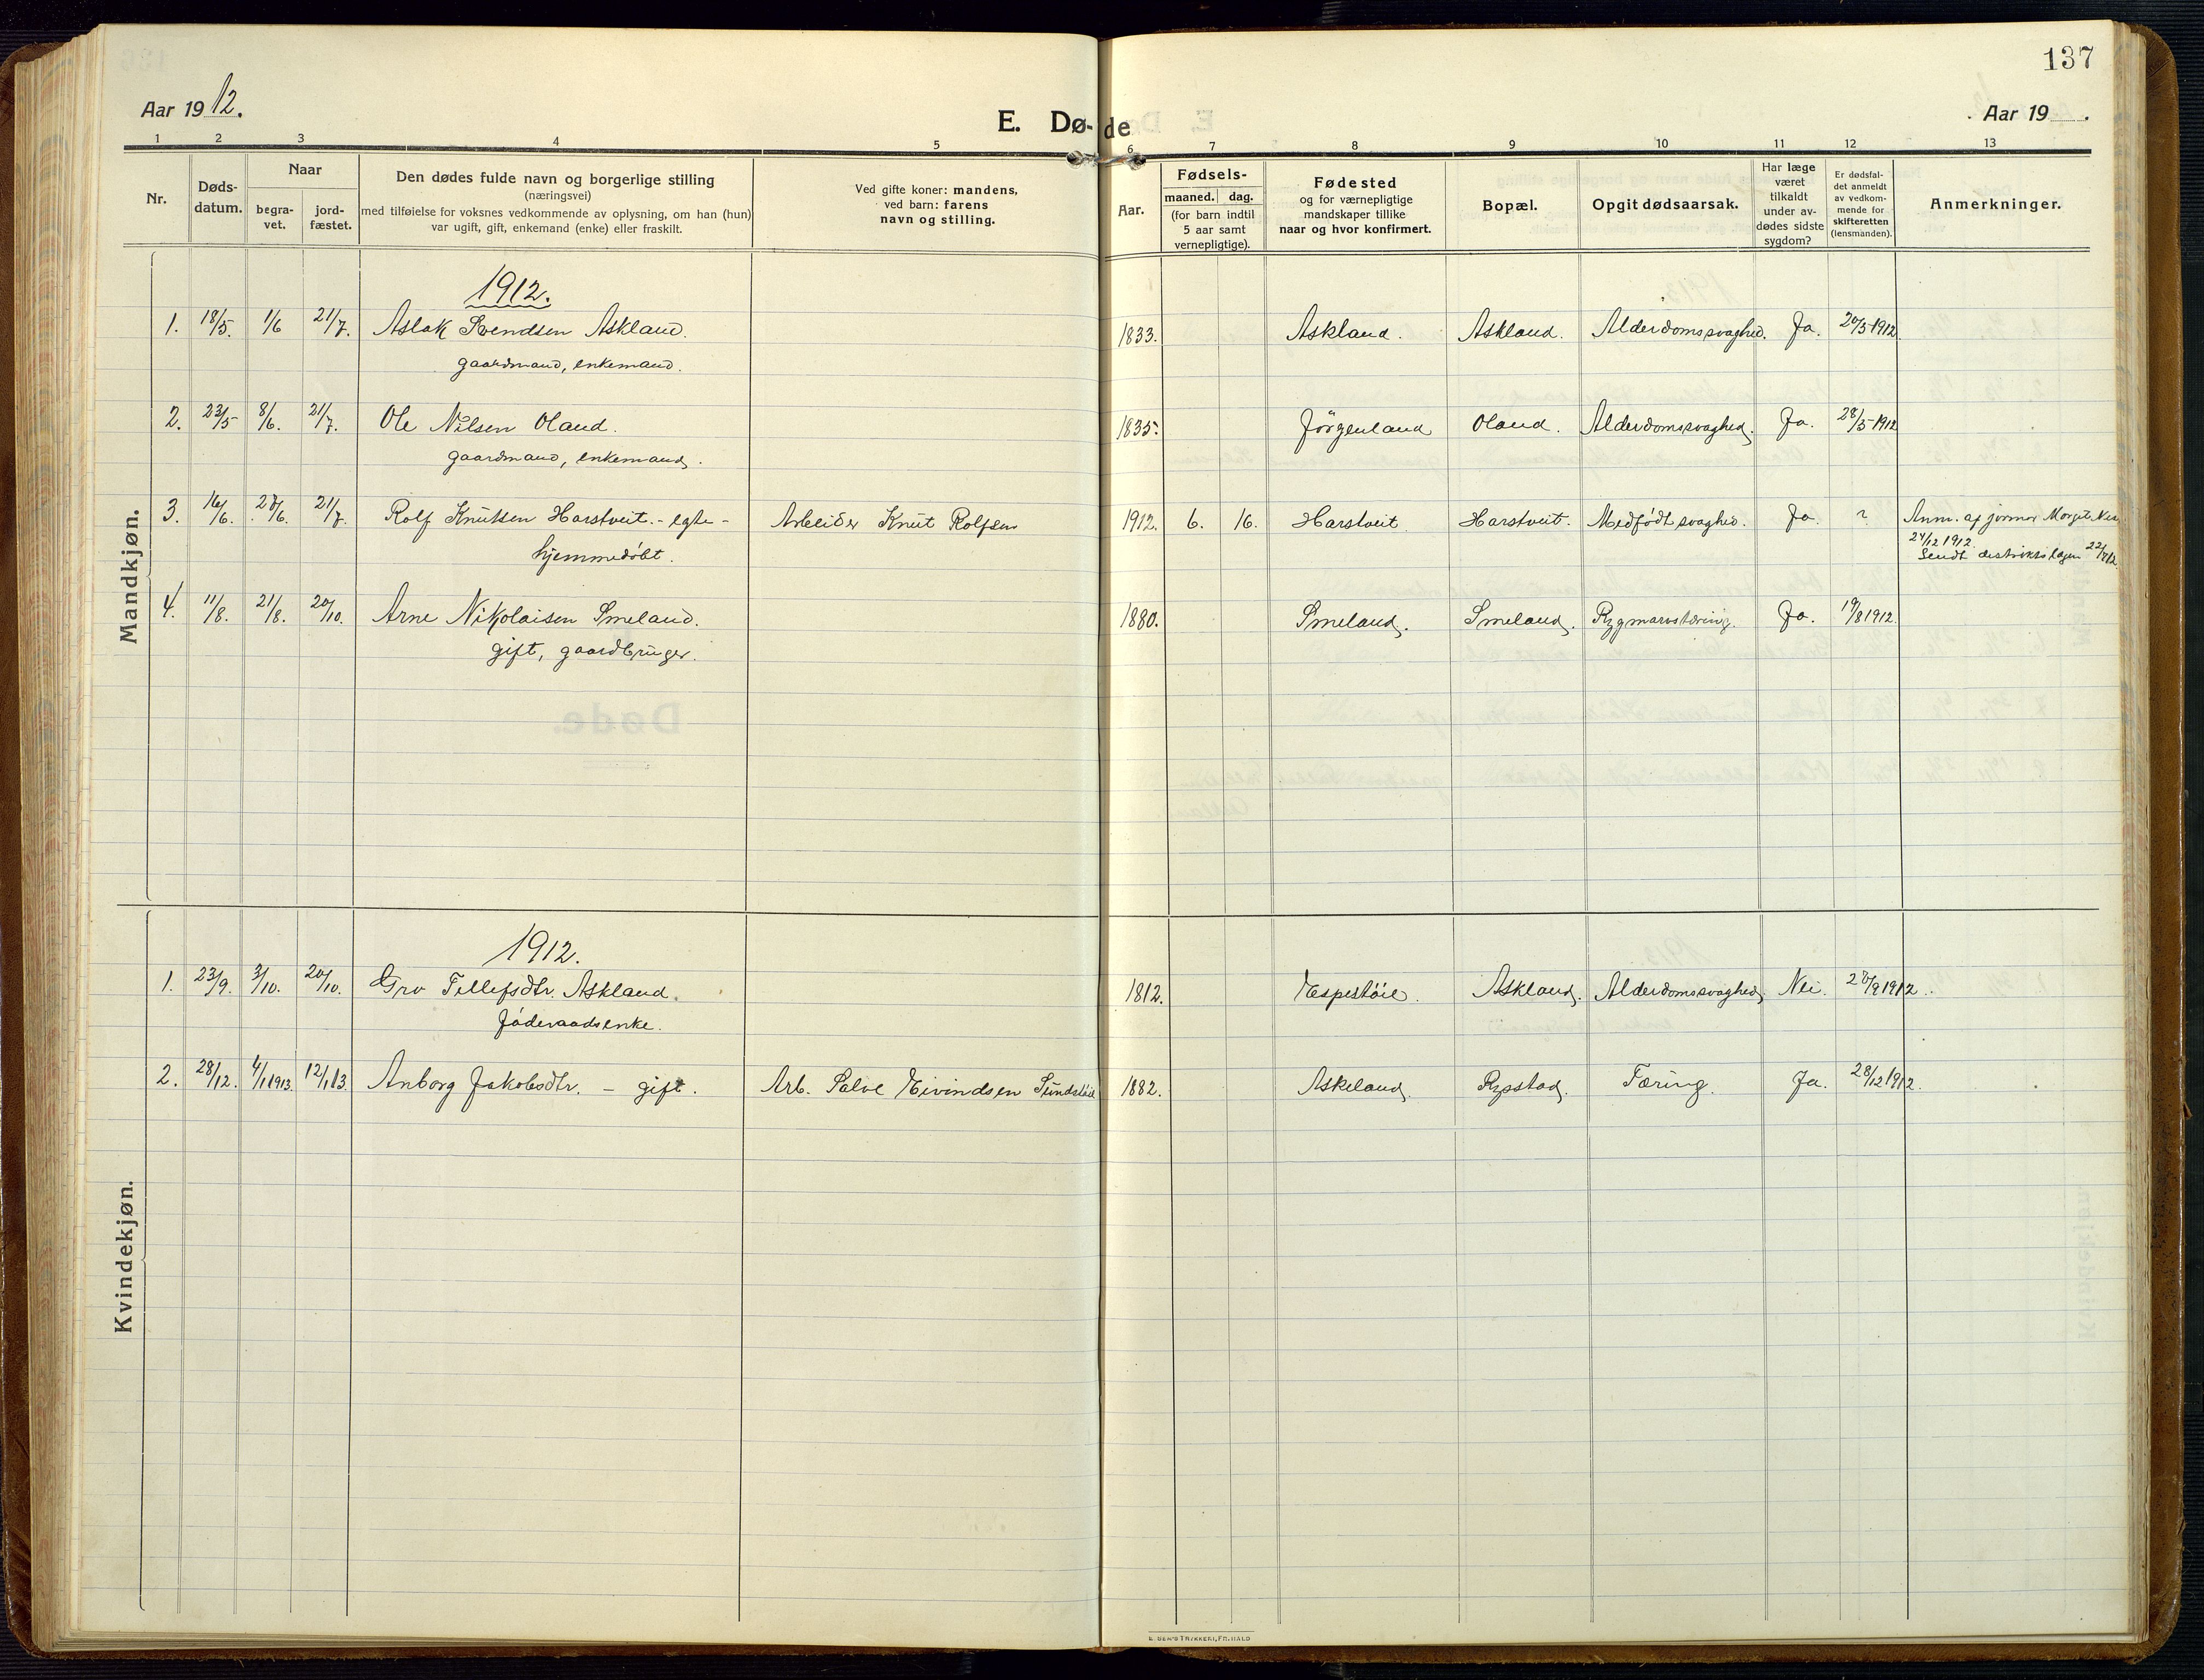 137
Aar 1912.
E. Dø-de
Aar 19 .
1 2 3 4 5 6 7 8 9 10 11 12 13
Nr.
Døds-
datum.
Naar
begra-
vet.
jord-
fæstet.
Den dødes fulde navn og borgerlige stilling
(næringsvei)
med tilføielse for voksnes vedkommende av oplysning, om han (hun)
var ugift, gift, enkemand (enke) eller fraskilt.
Ved gifte koner: mandens,
ved barn: farens
navn og stilling.
Aar.
Fødsels-
maaned. dag.
(for barn indtil
5 aar samt
vernepligtige).
Fødested
og for værnepligtige
mandskaper tillike
naar og hvor konfirmert.
Bopæl.
Opgit dødsaarsak.
Har læge
været
tilkaldt
under av-
dødes sidste
sygdom?
Er dødsfal-
det anmeldt
av vedkom-
mende for
skifteretten
(lensmanden).
Anmerkninger.
Mandkjøn.
1912.
1. 18/5. 1/6 21/7. Aslak Svendsen Askland. 1833. Askland. Askland. Alderdomssvaghed. Ja. 20/5 1912
gaardmand, enkemand.
2. 23/5 8/6. 21/7. Ole Nilsen Oland. 1835. Jörgenland Oland. Alderdomssvaghed. Ja. 28/5 1912
gaardmand, enkemand.
3. 16/6. 21/7. Rolf Knutsen Harstveit. - egte - Arbeider Knut Rolfsen 1912. 6. 16. Harstveit Harstveit. Medfödt svaghed. Ja. ? Anm. af jormor Margit
hjemmedöbt. 24/12 1912
Sendt distriktslægen
4. 11/8. 21/8. 20/10. Arne Nikolaisen Smeland. 1880. Smeland. Smeland. Rygmarvstæring. Ja. 19/8 1912.
gift, gaardbruger.
Kvindekjøn.
1912.
1. 23/9. 3/10. 20/10. Gro Tellefsdtr. Askland. 1812. Espestöil. Askland. Alderdomssvaghed Nei. /9 1912.
föderaadsenke.
2. 28/12. 4/1 1913. 12/1 13. Anborg Jakobsdtr. - gift. Arb. Salve Eivindsen Sundstöil 1882. Askeland. Rysstad. Tæring. Ja. 28/12 1912.